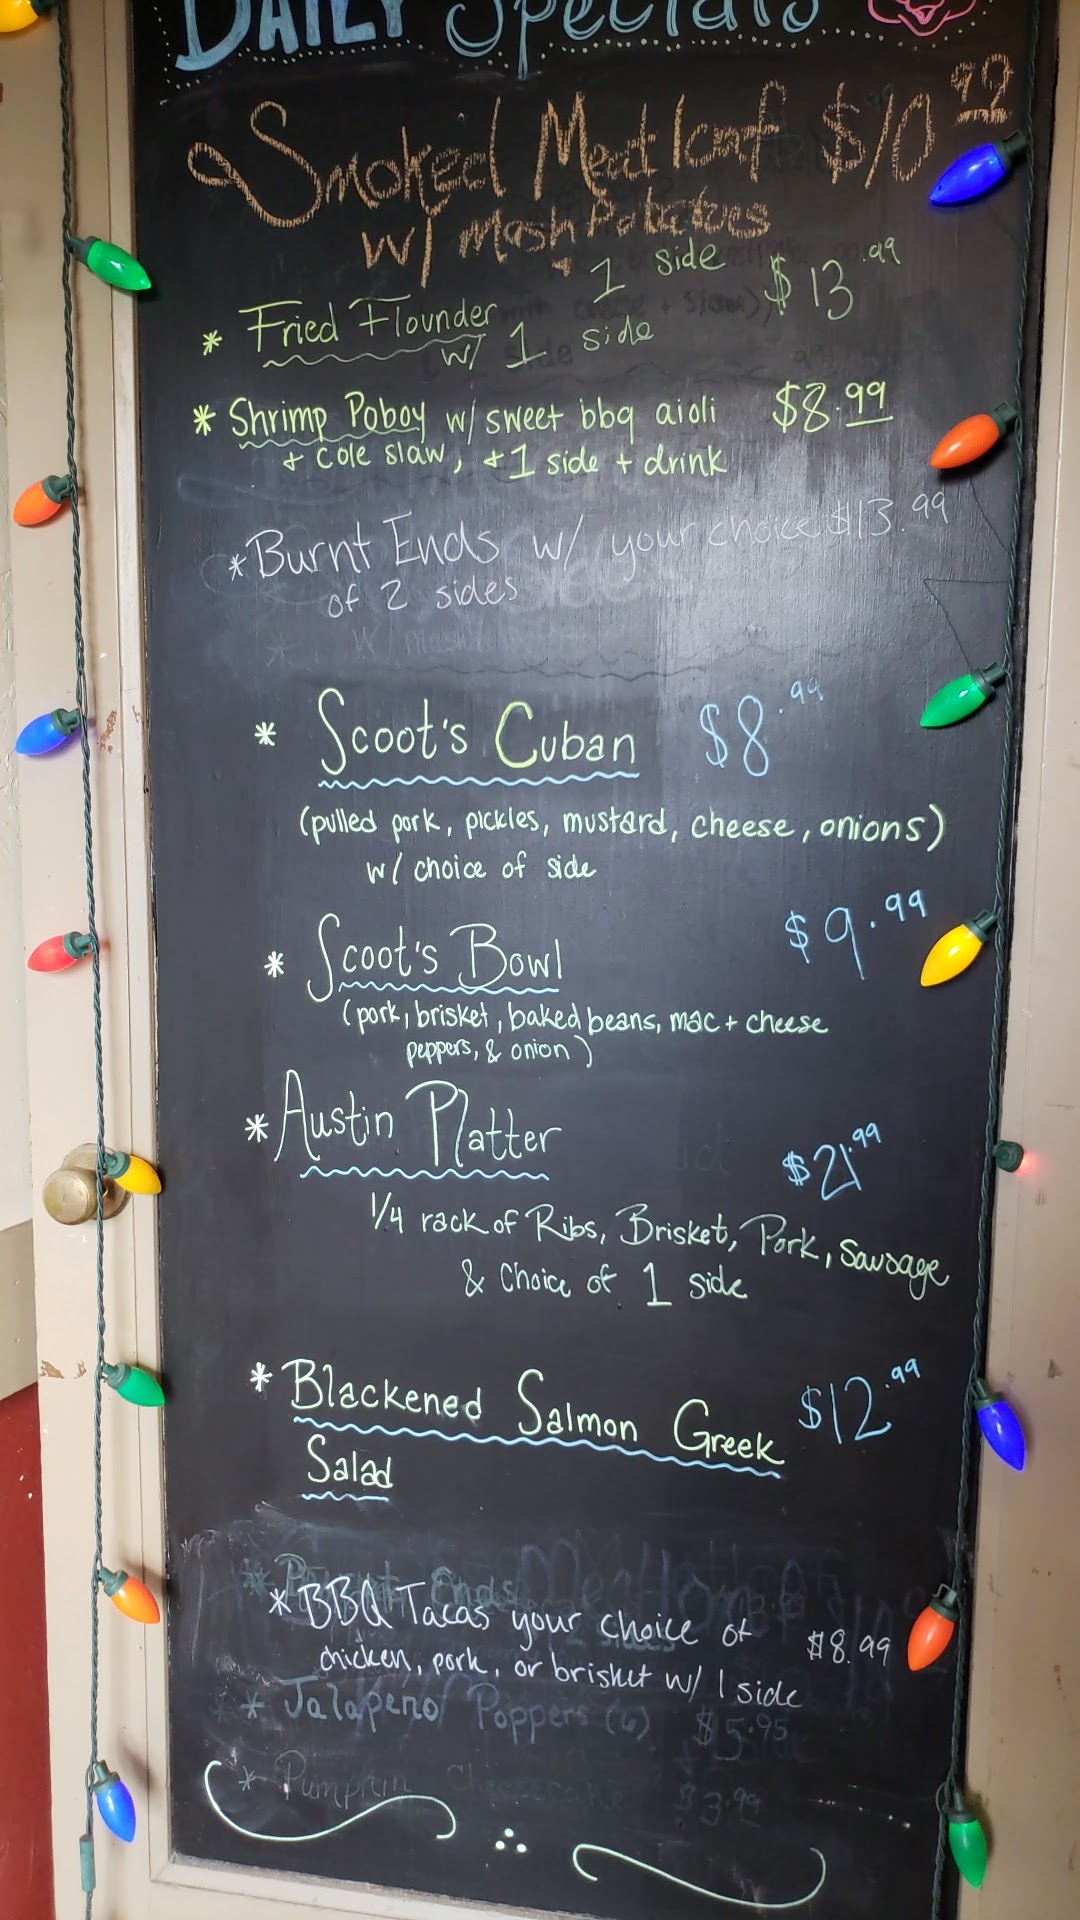 DAILY Specials
Smoked Meat loaf $10.99
w/ Mash Potatoes
1 side $13.99
* Fried Flounder
w/ 1 side
* Shrimp Poboy w/ sweet bbq aioli $8.99
+ cole slaw, +1 side + drink
*Burnt Ends w/ your choice $13.99
of 2 sides
* Scoot's Cuban $8.99
(pulled pork, pickles, mustard, cheese, onions)
w/ choice of side
* Scoot's Bowl $9.99
(pork, brisket, baked beans, mac + cheese
peppers, & onion)
*Austin Platter $21.99
1/4 rack of Ribs, Brisket, Pork, Sausage
& Choice of 1 side
*Blackened Salmon Greek $12.99
Salad
*BBQ Tacas your choice of $8.99
chicken, pork, or brisket w/ 1 side
* Jalapeno Poppers (6) $5.95
* Pumpkin Cheesecake $3.99